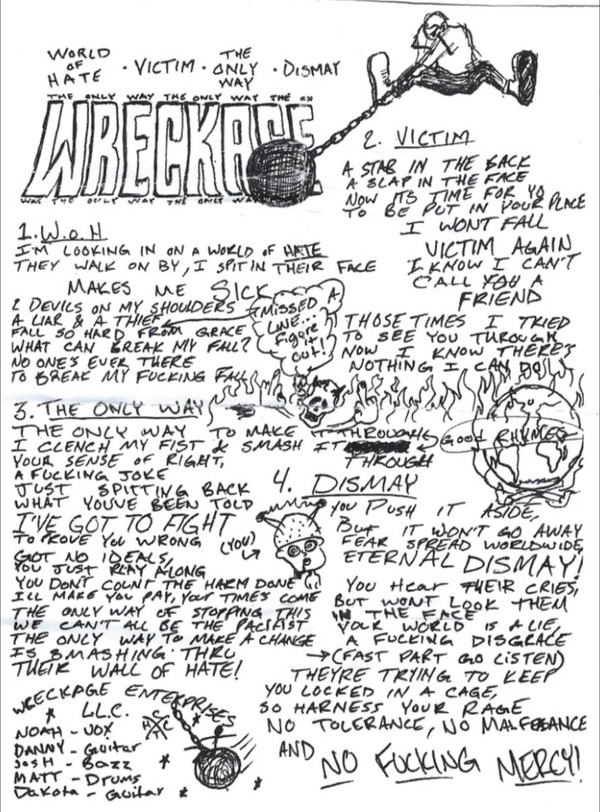 WORLD OF HATE · VICTIM · THE ONLY WAY · DISMAY
THE ONLY WAY THE ONLY WAY THE ON
WRECKAGE
WAY THE ONLY WAY THE ONLY WAY
1. W.O.H
I'M LOOKING IN ON A WORLD OF HATE
THEY WALK ON BY, I SPIT IN THEIR FACE
MAKES ME SICK
2 DEVILS ON MY SHOULDERS
A LIAR & A THIEF
FALL SO HARD FROM GRACE
WHAT CAN BREAK MY FALL?
NO ONE'S EVER THERE
TO BREAK MY FUCKING FALL
I MISSED A
LINE...
Figure
it
out!
2. VICTIM
A STAB IN THE BACK
A SLAP IN THE FACE
NOW ITS TIME FOR YO
TO BE PUT IN YOUR PLACE
I WONT FALL
VICTIM AGAIN
I KNOW I CAN'T
CALL YOU A
FRIEND
THOSE TIMES I TRIED
TO SEE YOU THROUGH
NOW I KNOW THERE'S
NOTHING I CAN DO
3. THE ONLY WAY
THE ONLY WAY TO MAKE IT THROUGH
I CLENCH MY FIST & SMASH IT
THROUGH
YOUR SENSE OF RIGHT,
A FUCKING JOKE
JUST SPITTING BACK
WHAT YOU'VE BEEN TOLD
I'VE GOT TO FIGHT
TO PROVE YOU WRONG
GOT NO IDEALS,
YOU JUST PLAY ALONG
YOU DON'T COUNT THE HARM DONE
I'LL MAKE YOU PAY, YOUR TIME'S COME
THE ONLY WAY OF STOPPING THIS
WE CAN'T ALL BE THE PACIFIST
THE ONLY WAY TO MAKE A CHANGE
IS SMASHING THRU
THEIR WALL OF HATE!
(YOU)
GOOD RHYMES
4. DISMAY
YOU PUSH IT ASIDE,
BUT IT WON'T GO AWAY
FEAR SPREAD WORLDWIDE,
ETERNAL DISMAY!
YOU HEAR THEIR CRIES,
BUT WONT LOOK THEM
IN THE FACE
YOUR WORLD IS A LIE,
A FUCKING DISGRACE
→(FAST PART GO LISTEN)
THEYRE TRYING TO KEEP
YOU LOCKED IN A CAGE,
SO HARNESS YOUR RAGE
NO TOLERANCE, NO MALFEASANCE
AND NO FUCKING MERCY!
WRECKAGE ENTERPRISES
L.L.C.
NOAH - VOX
DANNY - Guitar
JOSH - BAZZ
MATT - DRUMS
Dakota - Guitar